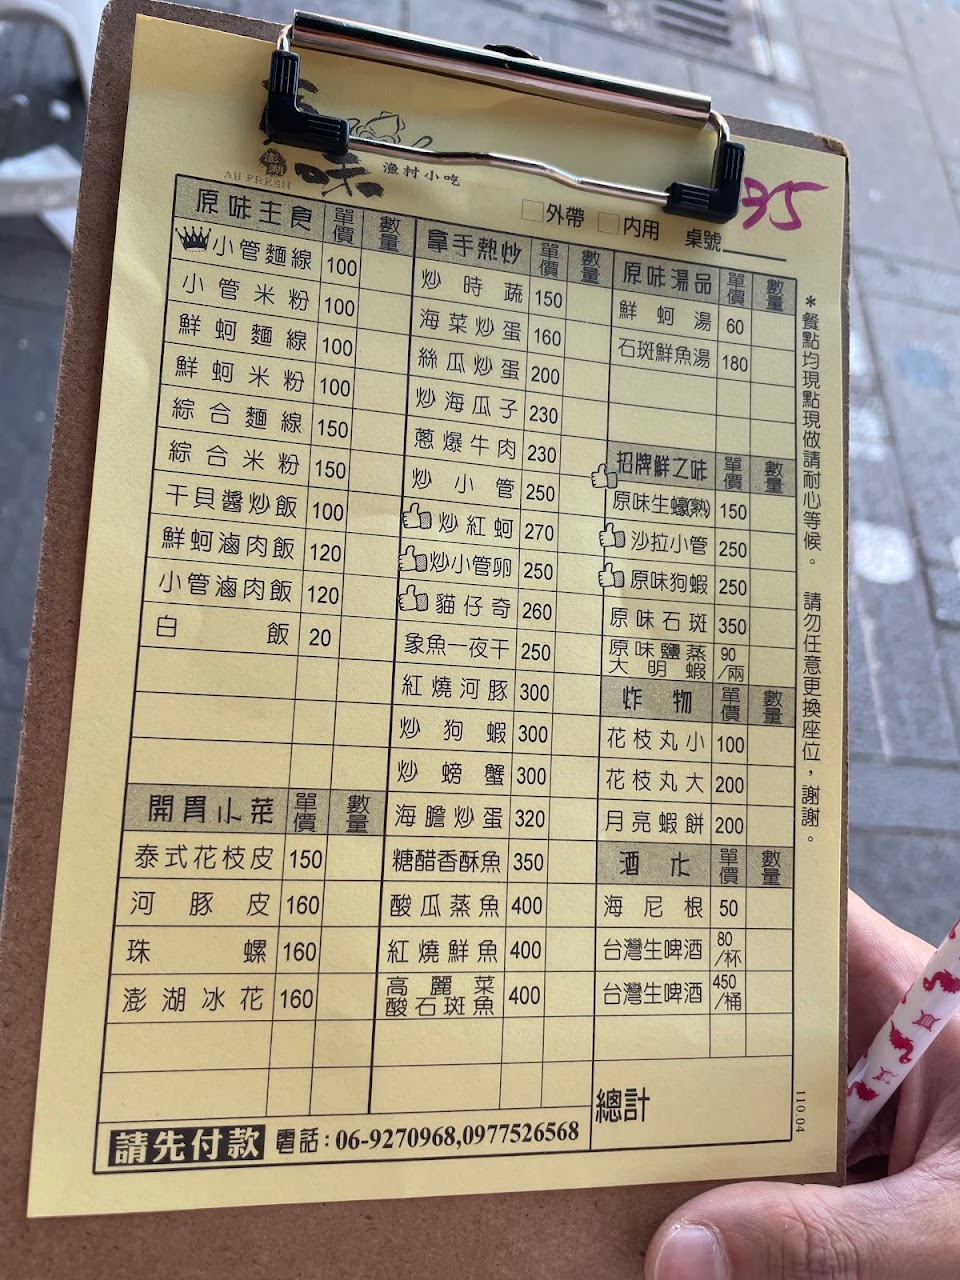 味
澎湖
AU FRESH
漁村小吃
外帶 內用 桌號
35
原味主食 單價 數量
小管麵線 100
小管米粉 100
鮮蚵麵線 100
鮮蚵米粉 100
綜合麵線 150
綜合米粉 150
干貝醬炒飯 100
鮮蚵滷肉飯 120
小管滷肉飯 120
白飯 20
開胃小菜 單價 數量
泰式花枝皮 150
河豚皮 160
珠螺 160
澎湖冰花 160
拿手熱炒 單價 數量
炒時蔬 150
海菜炒蛋 160
絲瓜炒蛋 200
炒海瓜子 230
蔥爆牛肉 230
炒小管 250
炒紅蚵 270
炒小管卵 250
貓仔奇 260
象魚一夜干 250
紅燒河豚 300
炒狗蝦 300
炒螃蟹 300
海膽炒蛋 320
糖醋香酥魚 350
酸瓜蒸魚 400
紅燒鮮魚 400
高麗菜
酸石斑魚 400
原味湯品 單價 數量
鮮蚵湯 60
石斑鮮魚湯 180
招牌鮮之味 單價 數量
原味生蠔(熟) 150
沙拉小管 250
原味狗蝦 250
原味石斑 350
原味鹽蒸
大明蝦 90/兩
炸物 單價 數量
花枝丸小 100
花枝丸大 200
月亮蝦餅 200
酒水 單價 數量
海尼根 50
台灣生啤酒 80/杯
台灣生啤酒 450/桶
總計
請先付款 電話:06-9270968,0977526568
*餐點均現點現做請耐心等候。 請勿任意更換座位,謝謝。
110.04